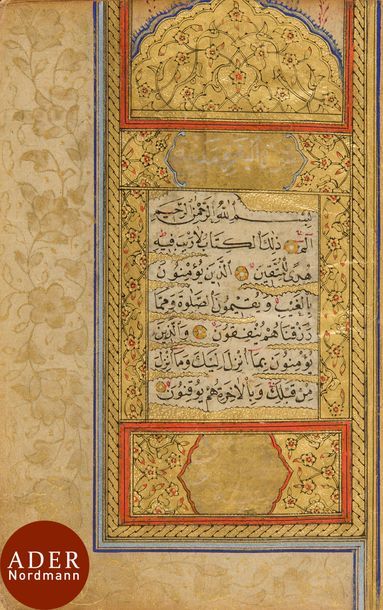 بسم الله الرحمن الرحيم
الم ذلك الكتاب لا ريب فيه
هدى للمتقين الذين يؤمنون
بالغيب ويقيمون الصلوة ومما
رزقناهم ينفقون والذين
يؤمنون بما انزل اليك وما انزل
من قبلك وبالاخرة هم يوقنون
ADER
Nordmann